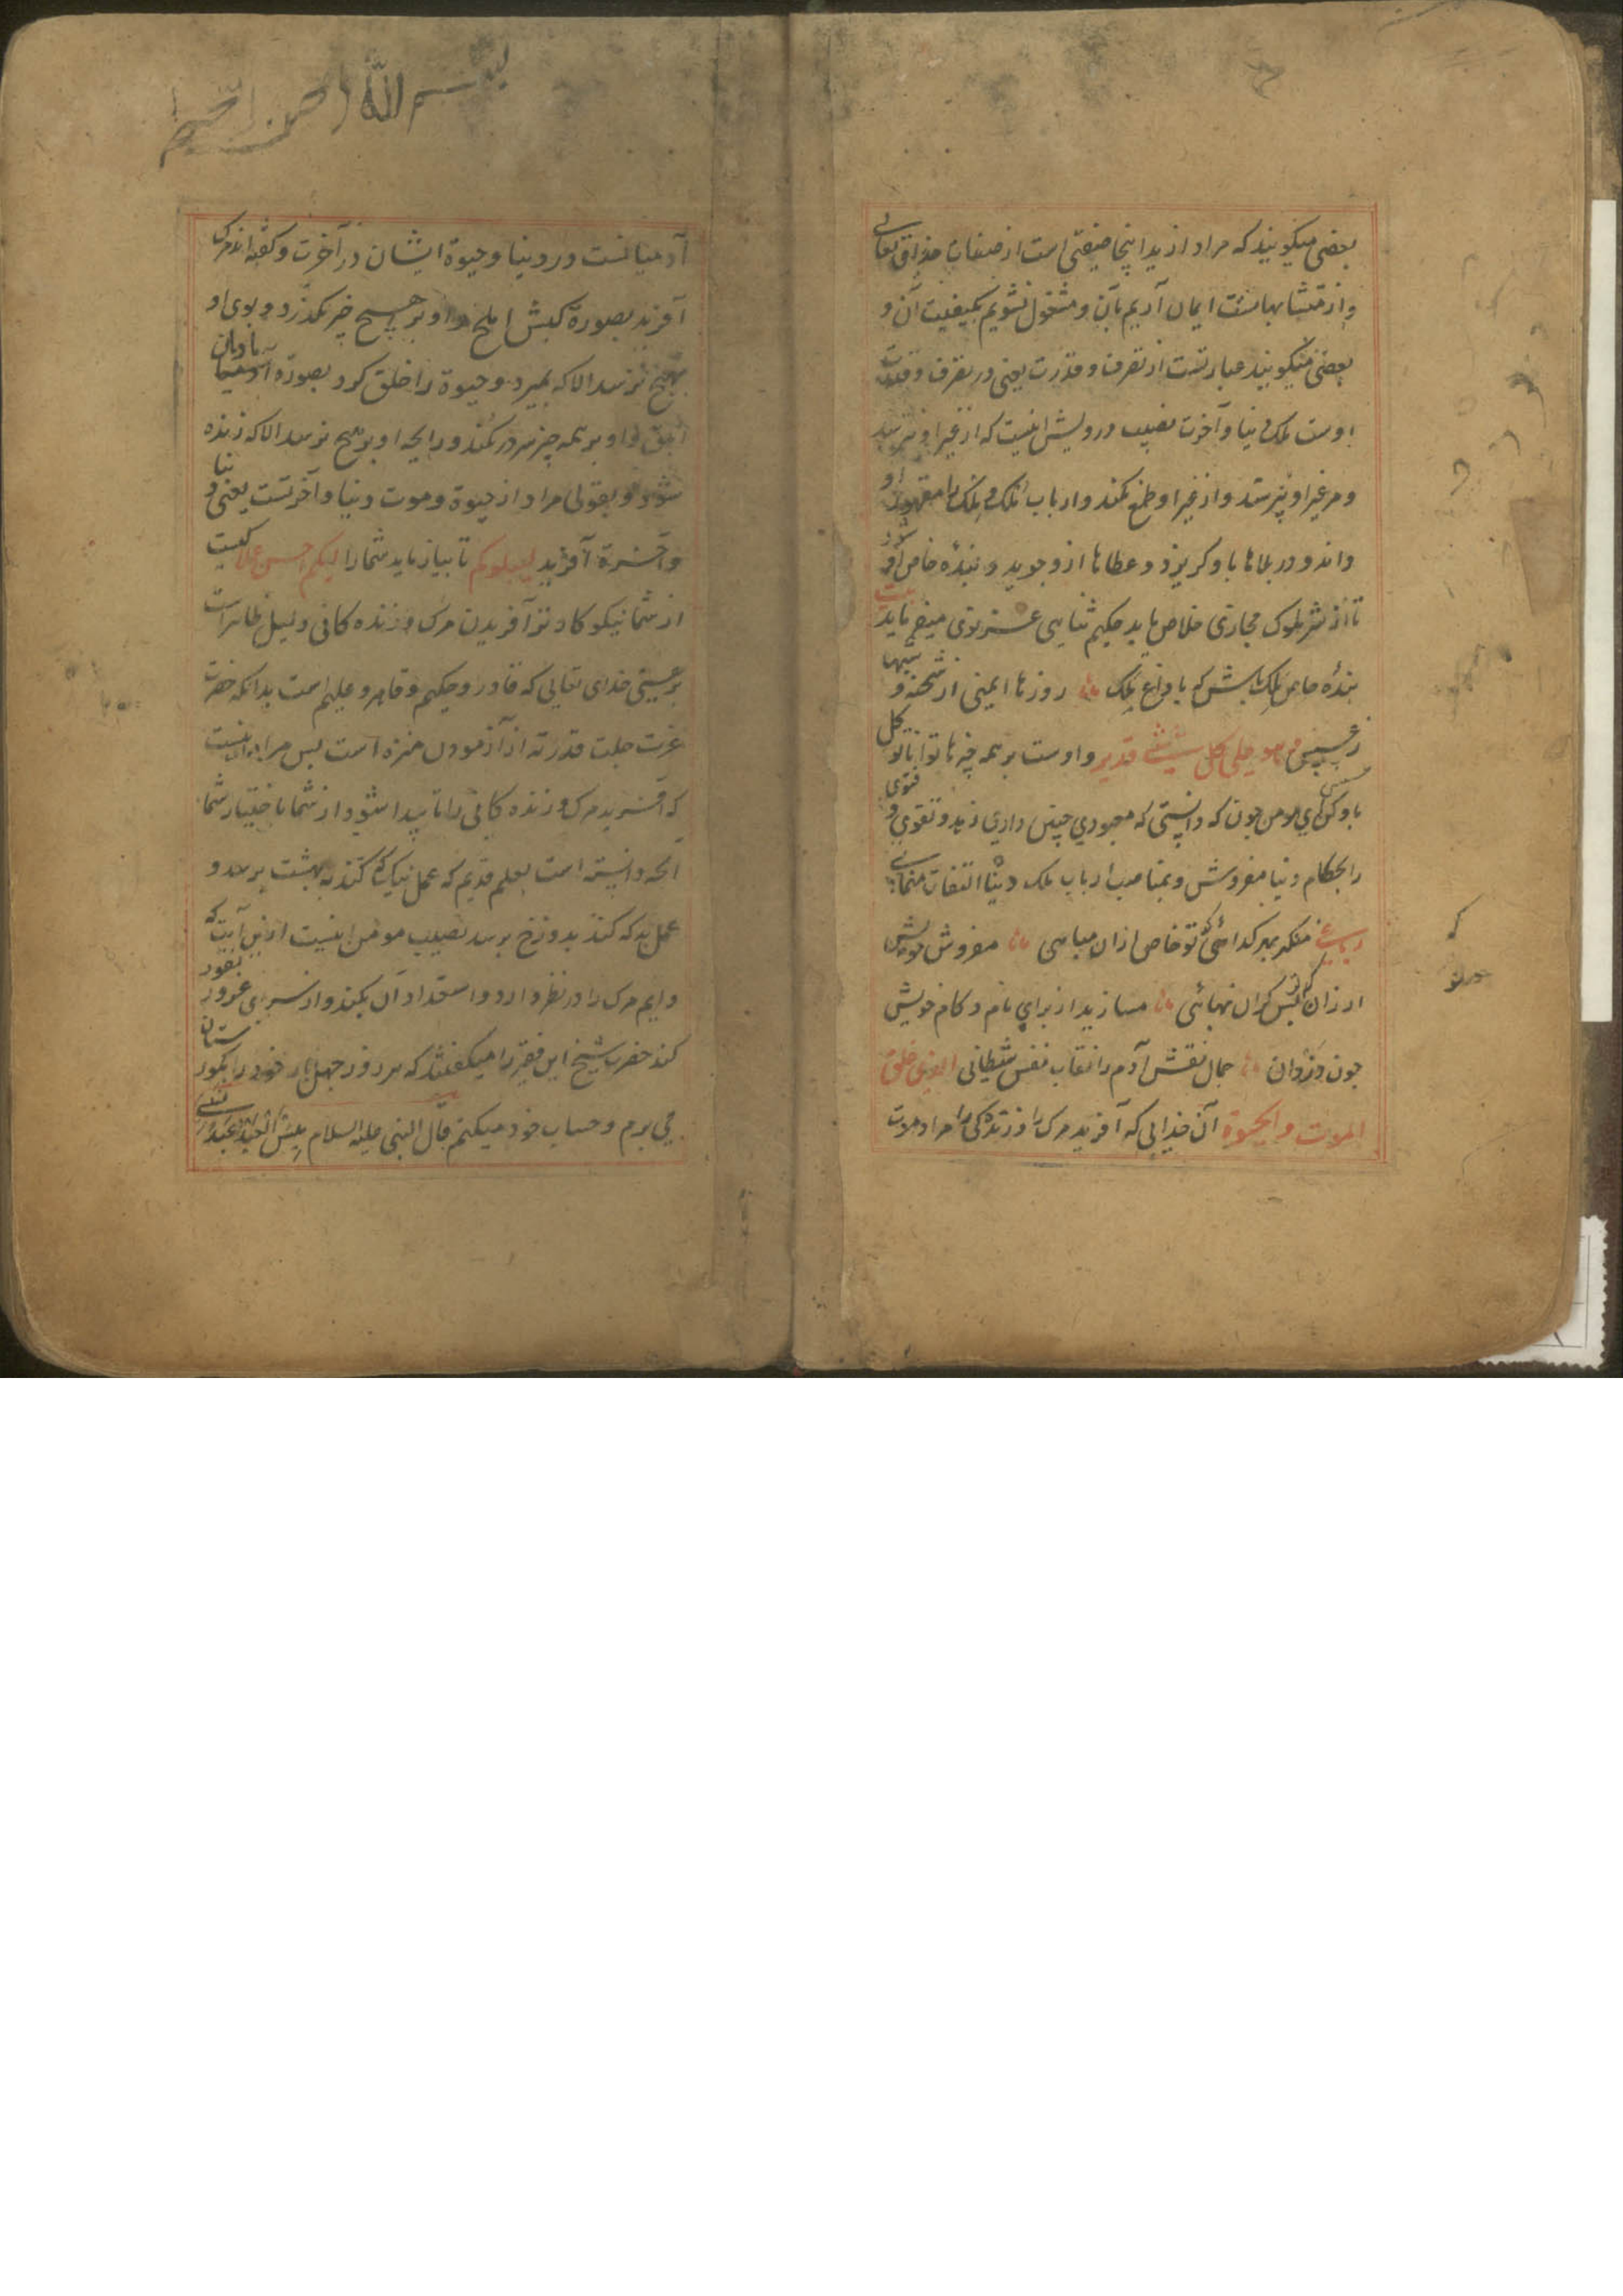 بعضی میکویند که مراد از ید اینجا صفتی است از صفات خدای تعالی
و از متشابهاتست ایمان آریم بآن و مشغول نشویم بکیفیت آن و
بعضی میکویند عبارتست از تصرف و قدرت یعنی در تصرف و قدرت
اوست ملک دنیا و آخرت نصیب درویش اینست که از غیر او نترسد
و مر غیر او نپرستد و از غیر او طمع نکند و ارباب ملک و ملک را مقهور او
داند و در بلاها باو کریزد و عطاها ازو جوید و بنده خاص او شود
تا از شر ملوک مجازی خلاص یابد حکیم ثنایی غزنوی میفرماید بیت
بندهٔ خاص ملک باش که با داغ ملک روزها ایمنی از شحنه و شبها
ز عسس وهو علی کل شیئ قدیر و اوست بر همه چیزها توانا توکل
باو کن ای مومن چون که دانستی که معبودی چنین داری زهد و تقوی و فتوی
را بحکام دنیا مفروش و بمناصب ارباب ملک دنیا التفات منمای
رباعی منکر بهر کدائی که تو خاص ازان مایی مفروش خویش
ارزان که تو بس کران بهائی مسازید از برای نام و کام خویش
چون دزدان جمال نقش آدم را نقاب نفس شیطانی الذی خلق
الموت والحیوة آن خدایی که آفرید مرک را و زندکی را مراد موت
بسم الله الرحمن الرحیم
آدمیانست در دنیا و حیوة ایشان در آخرت و کفته اند مرک
آفرید بصورة کبش املح و او بر هیچ چیز نکذرد و بوی او
بهیچ نرسد الا که بمیرد و حیوة را خلق کرد بصورة مادیان
ابلق و او بر همه چیز مرور نکند و رایحه او بر هیچ نرسد الا که زنده
شود و بقولی مراد از حیوة و موت دنیا و آخرتست یعنی دنیا
و آخرة آفرید لیبلوکم تا بیازماید شما را ایکم احسن عملا کیست
از شما نیکو کارتر آفریدن مرک و زنده کانی دلیل ظاهرست
بر هستی خدای تعالی که قادر و حکیم و قاهر و علیم است بدانکه حضرت
عزت جلت قدرته از آزمودن منزه است پس مراد اینست
که آفرید مرک و زنده کانی را تا پیدا شود از شما باختیار شما
آنچه دانسته است بعلم قدیم که عمل نیک که کند به بهشت برسد و
عمل بد که کند بدوزخ برسد نصیب مومن اینست ازین آیت که
دایم مرک را در نظر دارد و استعداد آن بکند و از سرای غرور نفور
کند حضرت شیخ این فقیر را میکفتند که هر روز چهل بار خود را بکورستان
می برم و حساب خود میکنم قال النبی علیه السلام بئس العبد عبد نسی